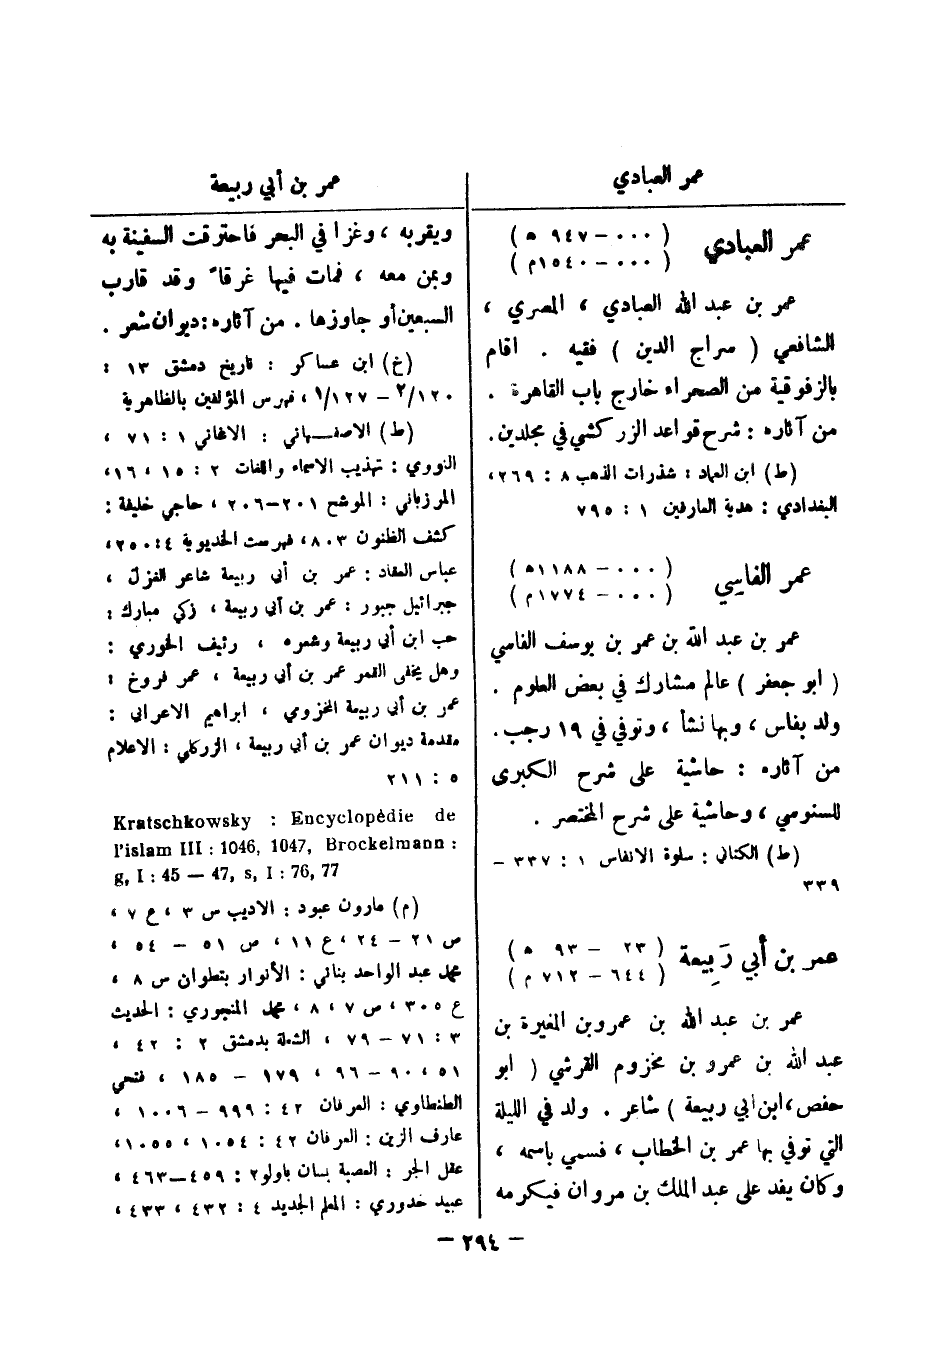 عمر العبادي
عمر العبادي
( ٠٠٠ – ٩٤٧ ه )
( ٠٠٠ – ١٥٤٠م )
عمر بن عبد الله العبادي ، المصري ،
الشافعي ( سراج الدين ) فقيه . اقام
بالزفوقية من الصحراء خارج باب القاهرة .
من آثاره : شرح قواعد الزركشي في مجلدين.
(ط) ابن العماد : شذرات الذهب ٨ : ٢٦٩،
البغدادي : هدية العارفين ١ : ٧٩٥
عمر الفاسي
( ٠٠٠ – ١١٨٨ه )
( ٠٠٠ – ١٧٧٤م )
عمر بن عبد الله بن عمر بن يوسف الفاسي
( ابو جعفر ) عالم مشارك في بعض العلوم .
ولد بفاس ، وبها نشأ ، وتوفي في ١٩ رجب.
من آثاره : حاشية على شرح الكبرى
للسنوسي ، وحاشية على شرح المختصر .
(ط) الكتاني : سلوة الانفاس ١ : ٣٣٧ –
٣٣٩
عمر بن أبي رَبِيعة
( ٢٣ – ٩٣ ه )
( ٦٤٤ – ٧١٢ م )
عمر بن عبد الله بن عمرو بن المغيرة بن
عبد الله بن عمرو بن مخزوم القرشي ( ابو
حفص، ابن ابي ربيعة ) شاعر . ولد في الليلة
التي توفي بها عمر بن الخطاب ، فسمي باسمه ،
وكان يفد على عبد الملك بن مروان فيكرمه
عمر بن أبي ربيعة
ويقربه ، وغزا في البحر فاحترقت السفينة به
وبمن معه ، فمات فيها غرقاً وقد قارب
السبعين أو جاوزها . من آثاره : ديوان شعر .
(خ) ابن عساكر : تاريخ دمشق ١٣ :
١٢٠/٢ – ١٢٧/١ ، فهرس المؤلفين بالظاهرية
(ط) الاصفهاني : الاغاني ١ : ٧١ ،
النووي : تهذيب الاسماء واللغات ٢ : ١٥ ، ١٦،
المرزباني : الموشح ٢٠١–٢٠٦ ، حاجي خليفة :
كشف الظنون ٨٠٣، فهرست الخديوية ٤ : ٢٥٠،
عباس العقاد : عمر بن أبي ربيعة شاعر الغزل ،
جبرائيل جبور : عمر بن أبي ربيعة ، زكي مبارك :
حب ابن أبي ربيعة وشعره ، رئيف الخوري :
وهل يخفى القمر عمر بن أبي ربيعة ، عمر فروخ :
عمر بن أبي ربيعة المخزومي ، ابراهيم الاعرابي :
مقدمة ديوان عمر بن أبي ربيعة ، الزركلي : الاعلام
٥ : ٢١١
Kratschkowsky : Encyclopédie de
l'islam III : 1046, 1047, Brockelmann :
g, I : 45 — 47, s, I : 76, 77
(م) مارون عبود : الاديب س ٣ ، ع ٧ ،
ص ٢١ – ٢٤ ، ع ١١ ، ص ٥١ – ٥٤ ،
محمد عبد الواحد بناني : الأنوار بتطوان س ٨ ،
ع ٣٠٥ ، ص ٧ ، ٨ ، محمد المنجوري : الحديث
٣ : ٧١ – ٧٩ ، الشعلة بدمشق ٢ : ٤٢ ،
٥١ ، ٩٠ – ٩٦ ، ١٧٩ – ١٨٥ ، فتحي
الطنطاوي : العرفان ٤٢ : ٩٩٩ – ١٠٠٦ ،
عارف الزين : العرفان ٤٢ : ١٠٥٤ ، ١٠٥٥،
عقل الجر : العصبة بسان باولو ٢ : ٤٥٩–٤٦٣ ،
عبيد خدوري : المعلم الجديد ٤ : ٤٣٢ ، ٤٣٣ ،
– ٢٩٤ –